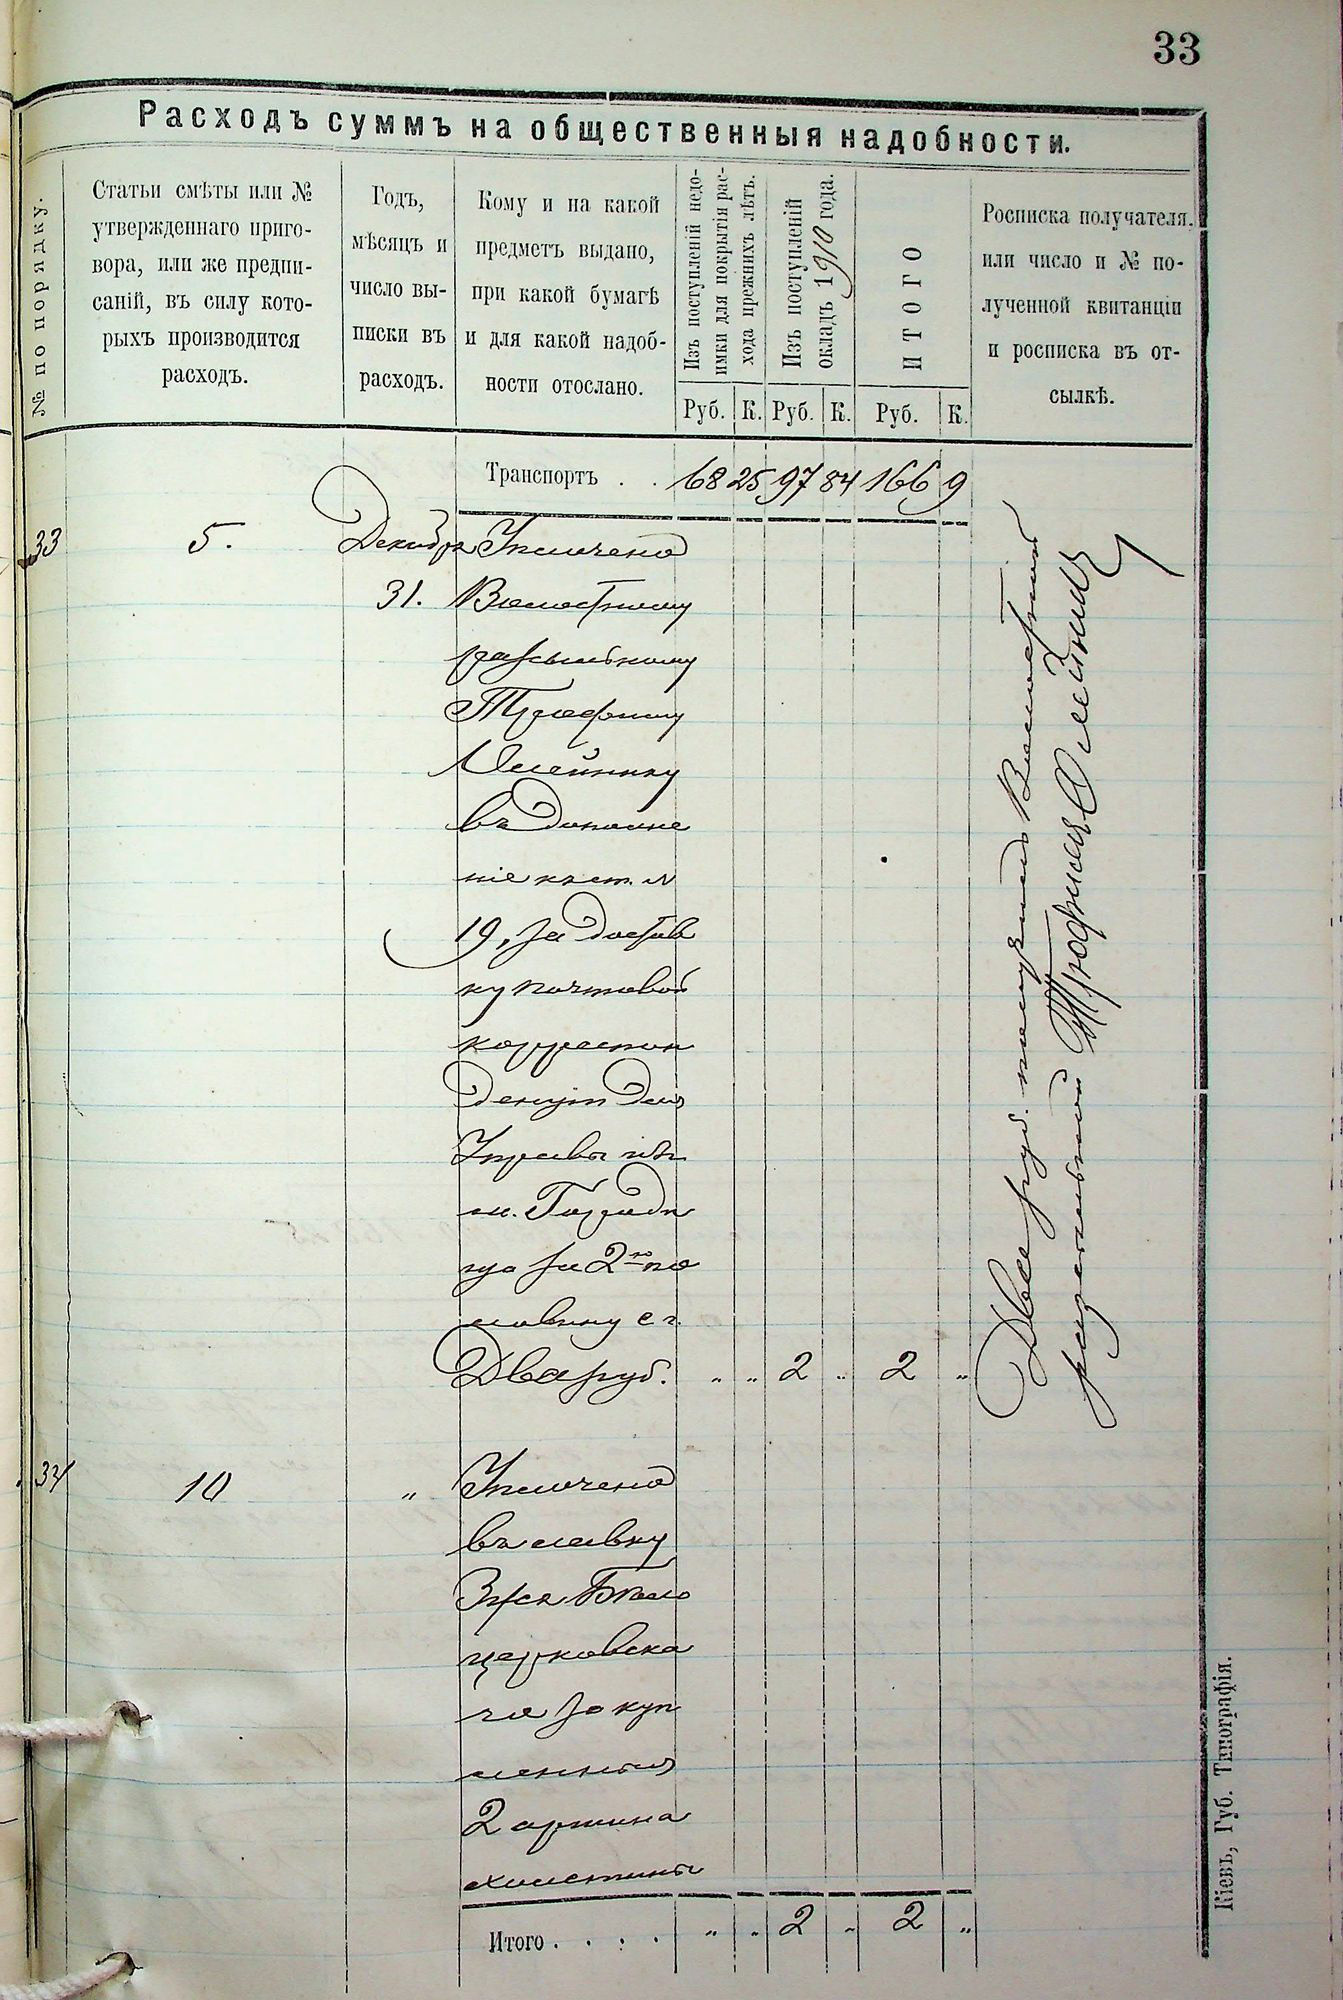 33
Расходъ суммъ на общественныя надобности.
№ по порядку.
Статьи смѣты или №
утвержденнаго приго-
вора, или же предпи-
саній, въ силу кото-
рыхъ производится
расходъ.
Годъ,
мѣсяцъ и
число вы-
писки въ
расходъ.
Кому и на какой
предметъ выдано,
при какой бумагѣ
и для какой надоб-
ности отослано.
Изъ поступленій недо-
имки для покрытія рас-
хода прежнихъ лѣтъ.
Изъ поступленій
окладъ 1910 года.
ИТОГО
Росписка получателя,
или число и № по-
лученной квитанціи
и росписка въ от-
сылкѣ.
Руб. К. Руб. К. Руб. К.
Транспортъ . . 68 25 97 84 166 9
33 5. Декабря Уплочено
31. Волостному
разсыльному
Трофиму
Олейнику
въ дополне
ніе къ ст. №
19, за достав
ку почтовой
корреспон
денціи для
Управы изъ
м. Городи
ща за 2ю по
ловину с г.
Два руб. „ „ 2 „ 2 „
Два руб. получилъ Волостной
разсыльный Трофимъ Олейникъ
34 10 „ Уплочено
въ лавку
Зуся Бѣло
церковска
го за куп
ленныя
2 аршина
Итого . . . . „ „ 2 „ 2 „
Кіевъ, Губ. Типографія.